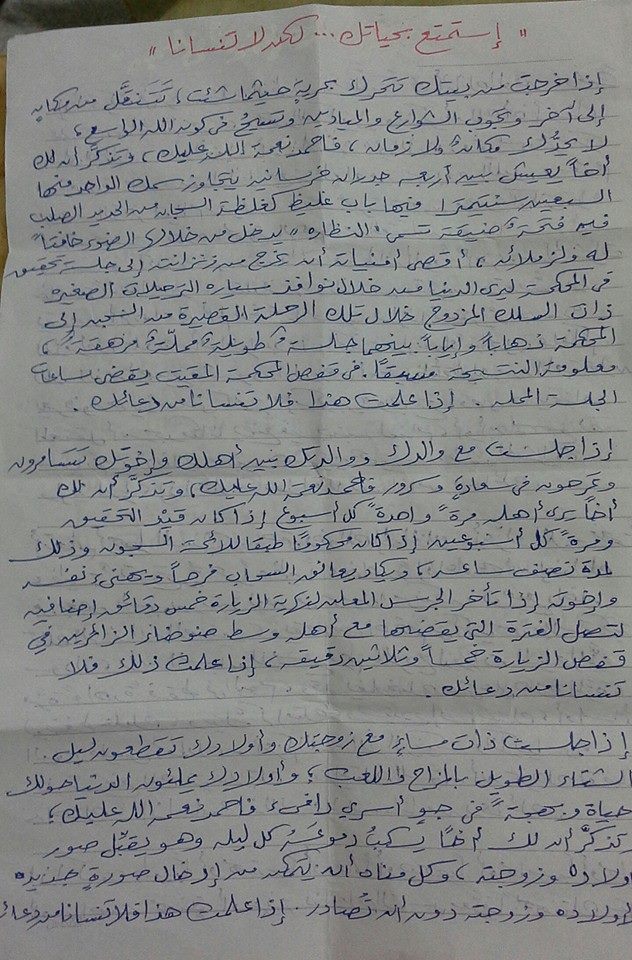 " إستمتع بحياتك ... لكن لا تنسانا "
إذا خرجت من بيتك تتحرك بحرية حيثما شئت، تتنقَّل من مكان
إلى آخر وتجوب الشوارع والميادين وتسيح في كون الله الواسع،
لا يحدُّك مكانٌ ولا زمان، فاحمد نعمة الله عليك، وتذكَّر أن لك
أخاً يعيش بين أربعة جدران خرسانية يتجاوز سمك الواحد منها
السبعين سنتيمترا فيها باب غليظ كغلظة السجان من الحديد الصلب
فيه فتحة ضيقة تسمى "النظاره" يدخل من خلالها الضوء خافتاً
له ولزملائه، أقصى أمنياته أن يخرج من زنزانته إلى جلسة تحقيق
في المحكمة ليرى الدنيا من خلال نوافذ سياره الترحيلات الصغيره
ذات السلك المزدوج خلال تلك الرحلة القصيرة من السجن إلى
المحكمة ذهاباً وإياباً بينهما جلسة طويلة مملّة مرهقة،
معلومة النتيحة مسبقاً. في قفص المحكمة المقيت يقضى ساعات
الجلسة المملة. إذا علمت هذا فلا تنسانا من دعائك.
إذا جلست مع والدك ووالدتك بين أهلك وإخوتك تتسامرون
وتمرحون في سعادةٍ وسرور فاحمد نعمة الله عليك، وتذكَّر أن لك
أخاً يرى أهله مرةً واحدةً كل أسبوع إذا كان قيد التحقيق
ومرةً كل أسبوعين إذا كان محكومًا طبقا للائحة السجون وذلك
لمدة نصف ساعه، ويكاد يعانق السحاب فرحاً ويهنىء نفسه
وإخوته إذا تأخر الجرس المعلن لنهاية الزيارة خمس دقائق إضافية
لتصل الفترة التى يقضيها مع أهله وسط ضوضاء الزائرين في
قفص الزيارة خمساً وثلاثين دقيقه، إذا علمت ذلك فلا
تنسانا من دعائك.
إذا جلست ذات مساءٍ مع زوجتك وأولادك تقطعون ليل
الشتاء الطويل بالمزاح واللعب، وأولادك يملئون الدنيا حولك
حياة وبهجةً في جو أسري دافىء فاحمد نعمة الله عليك،
وتذكَّر أن لك أخًا يسكبُ دموعَهُ كل ليله وهو يقبّل صور
أولاده وزوجته، وكل مناه أن يتمكن من إدخال صورةٍ جديده
لأولاده وزوجته دون أن تُصادر. إذا علمت هذا فلا تنسانا من دعائك